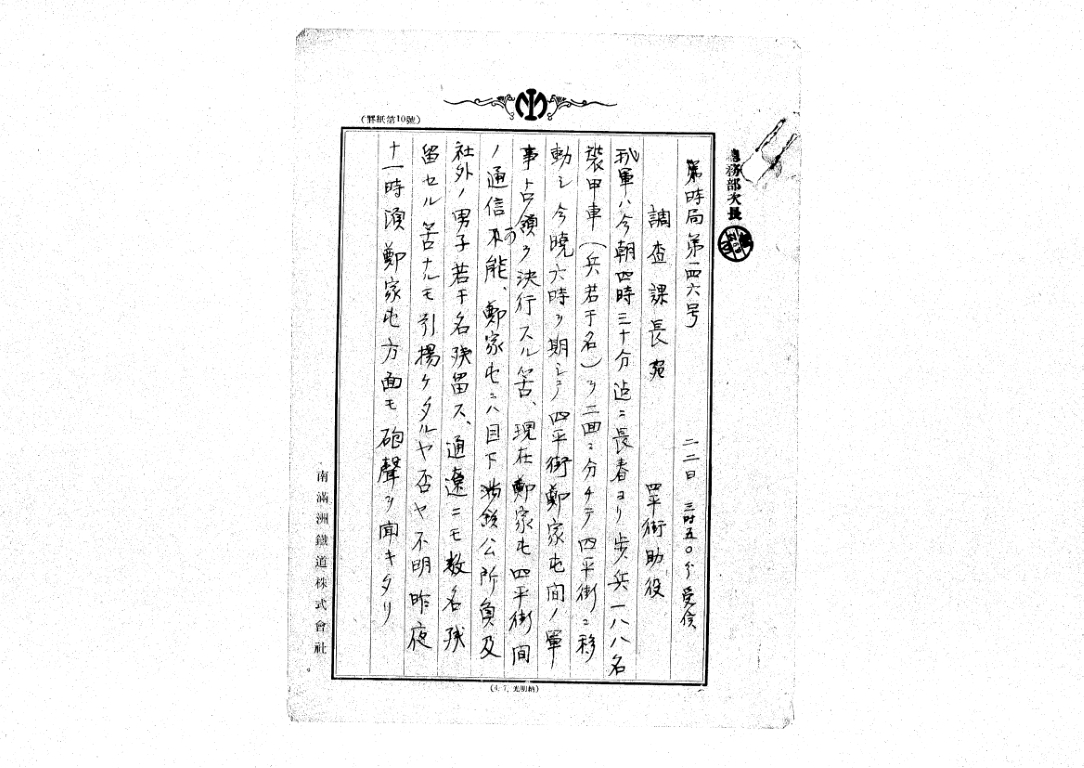 (罫紙第10號)
總務部次長
第時局第一四六号
二二日 三時五〇分受信
調査課長宛
四平街助役
我軍ハ今朝四時三十分迄ニ長春ヨリ歩兵一八八名
装甲車(兵若干名)ヲ二回ニ分チテ四平街ニ移
動シ今暁六時ヲ期シテ四平街鄭家屯間ノ軍
事占領ヲ決行スル筈、現在鄭家屯四平街間
ノ通信不可能、鄭家屯ニハ目下満鉄公所員及
社外ノ男子若干名残留ス、通遼ニモ数名残
留セル筈ナルモ引揚ケタルヤ否ヤ不明昨夜
十一時頃鄭家屯方面モ砲聲ヲ聞キタリ
南滿洲鐵道株式會社